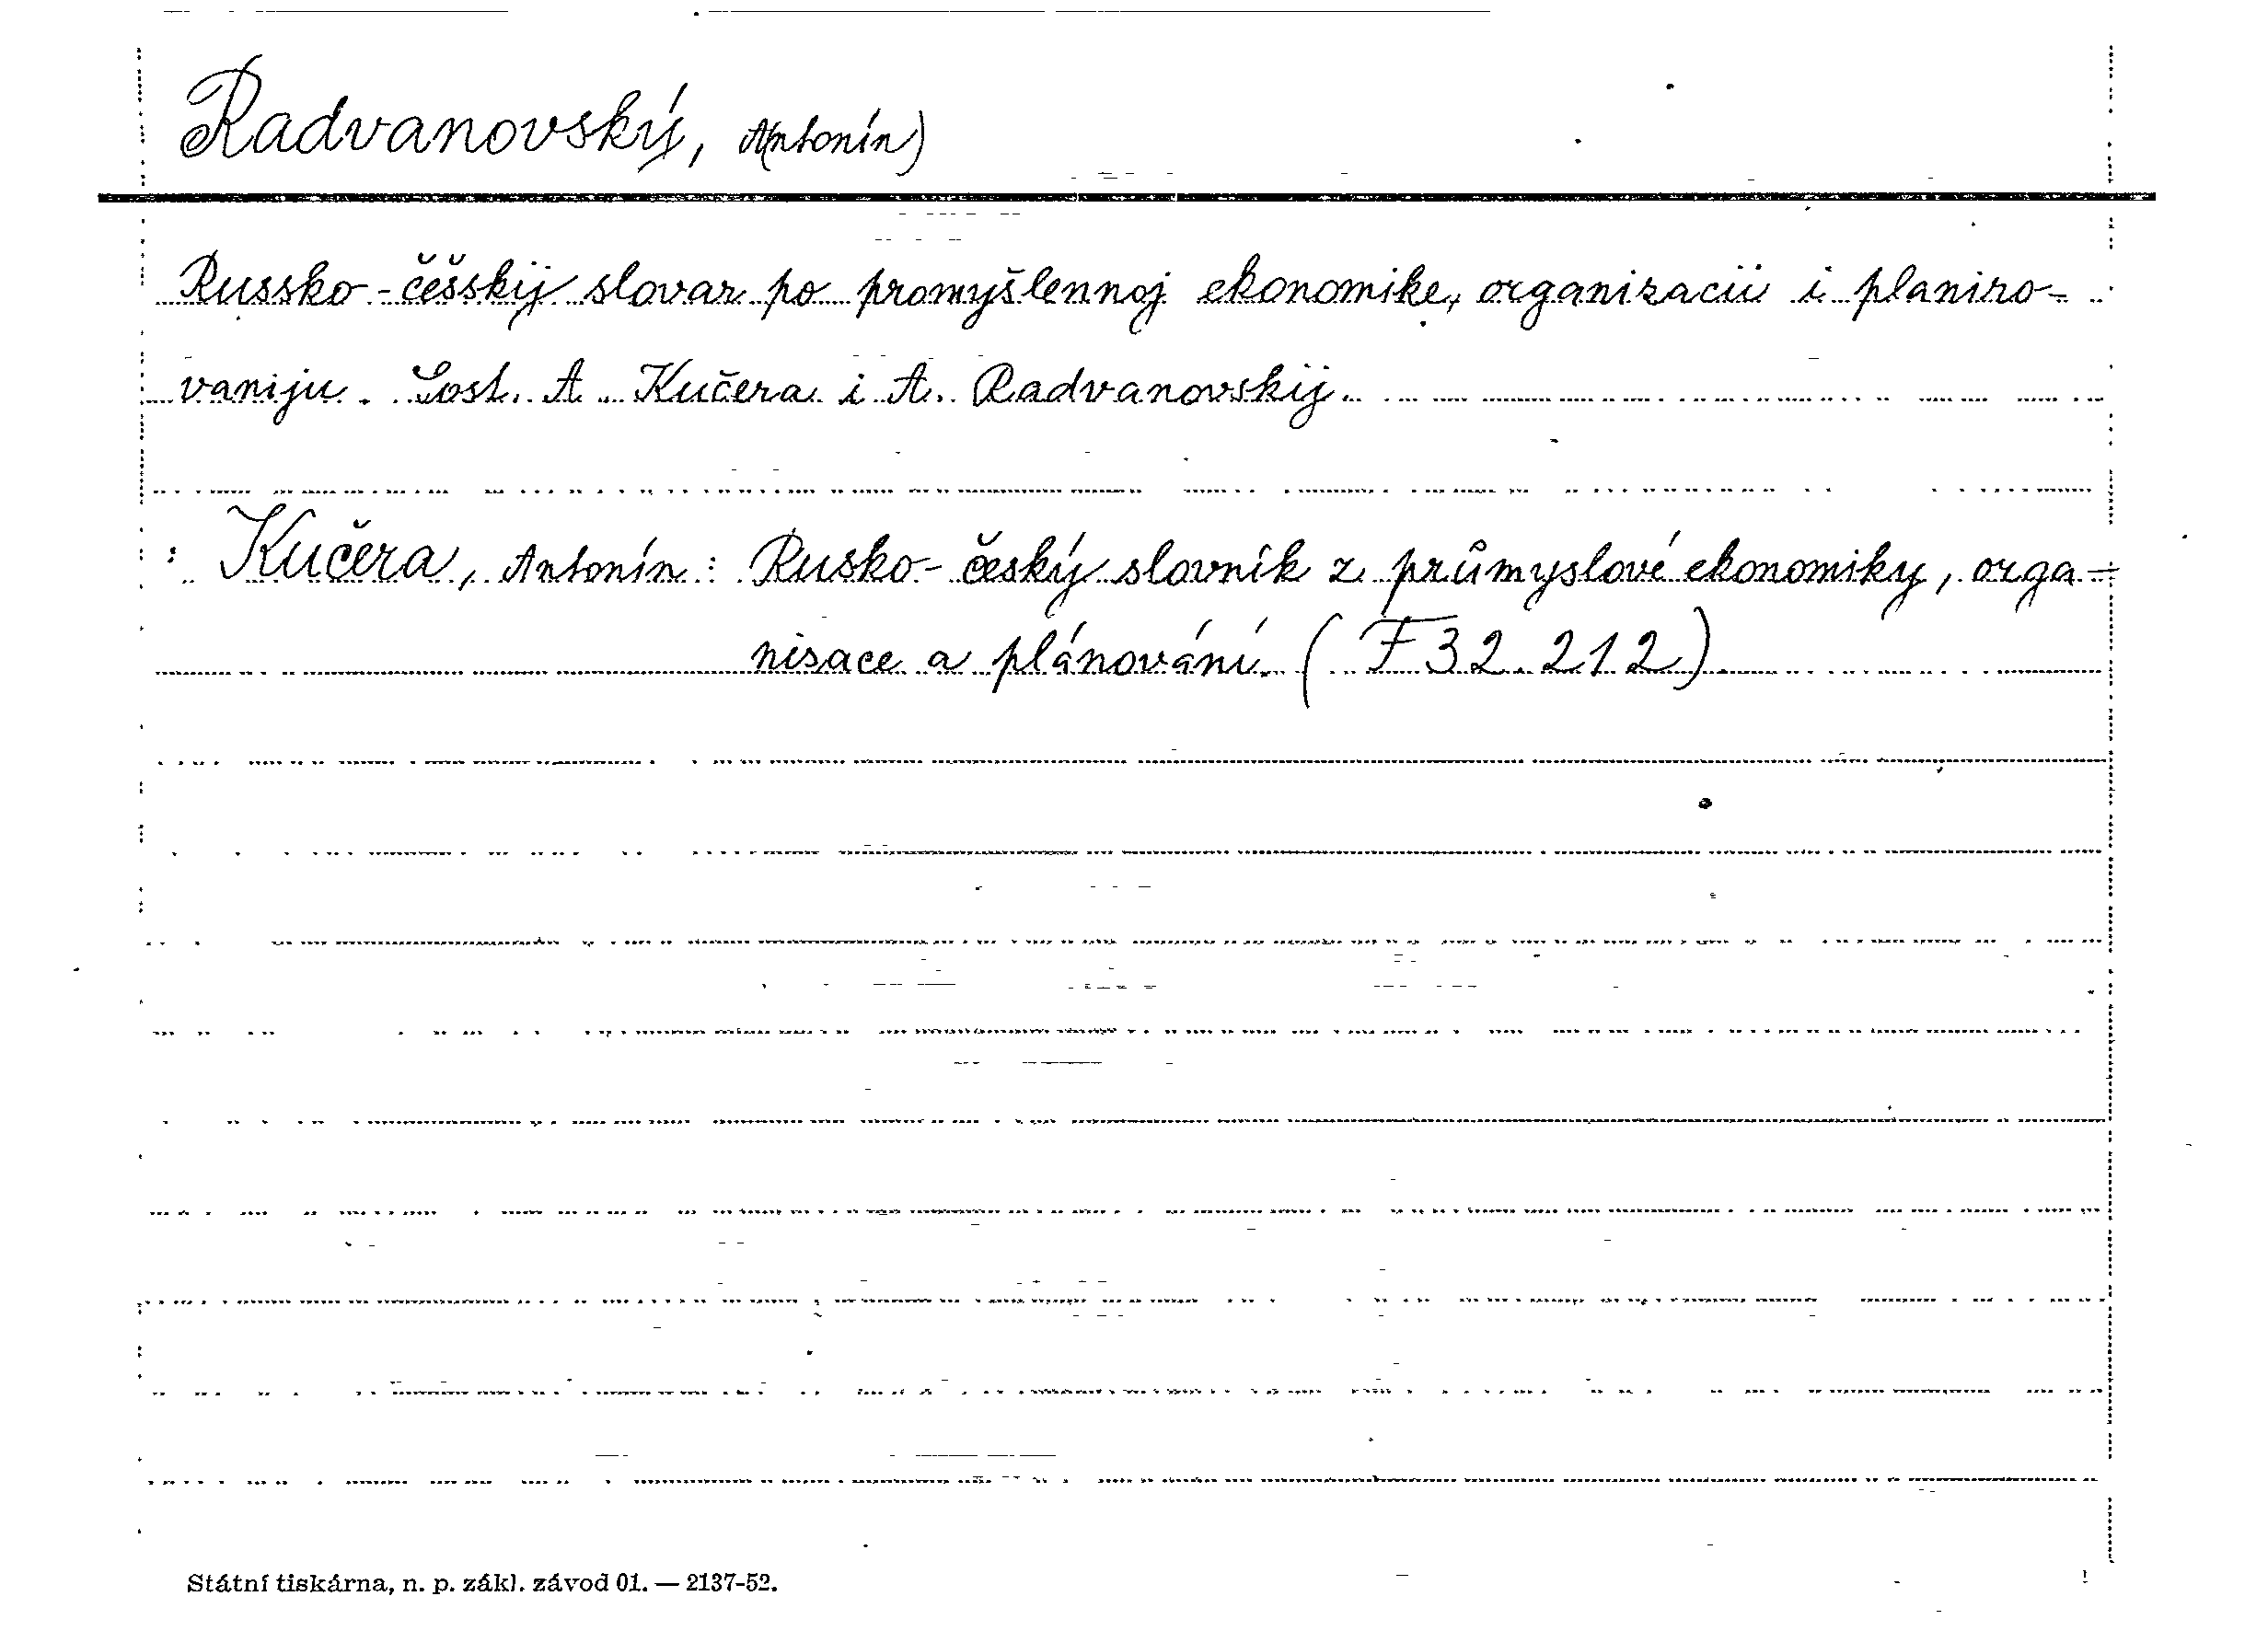 Radvanovský, A(ntonín)
Russko-češskij slovar po promyšlennoj ekonomike, organizacii i planiro-
vaniju. Sost. A. Kučera i A. Radvanovskij.
: Kučera, Antonín: Rusko-český slovník z průmyslové ekonomiky, orga-
nisace a plánování. (F 32.212)
Státní tiskárna, n. p. zákl. závod 01. — 2137-52.